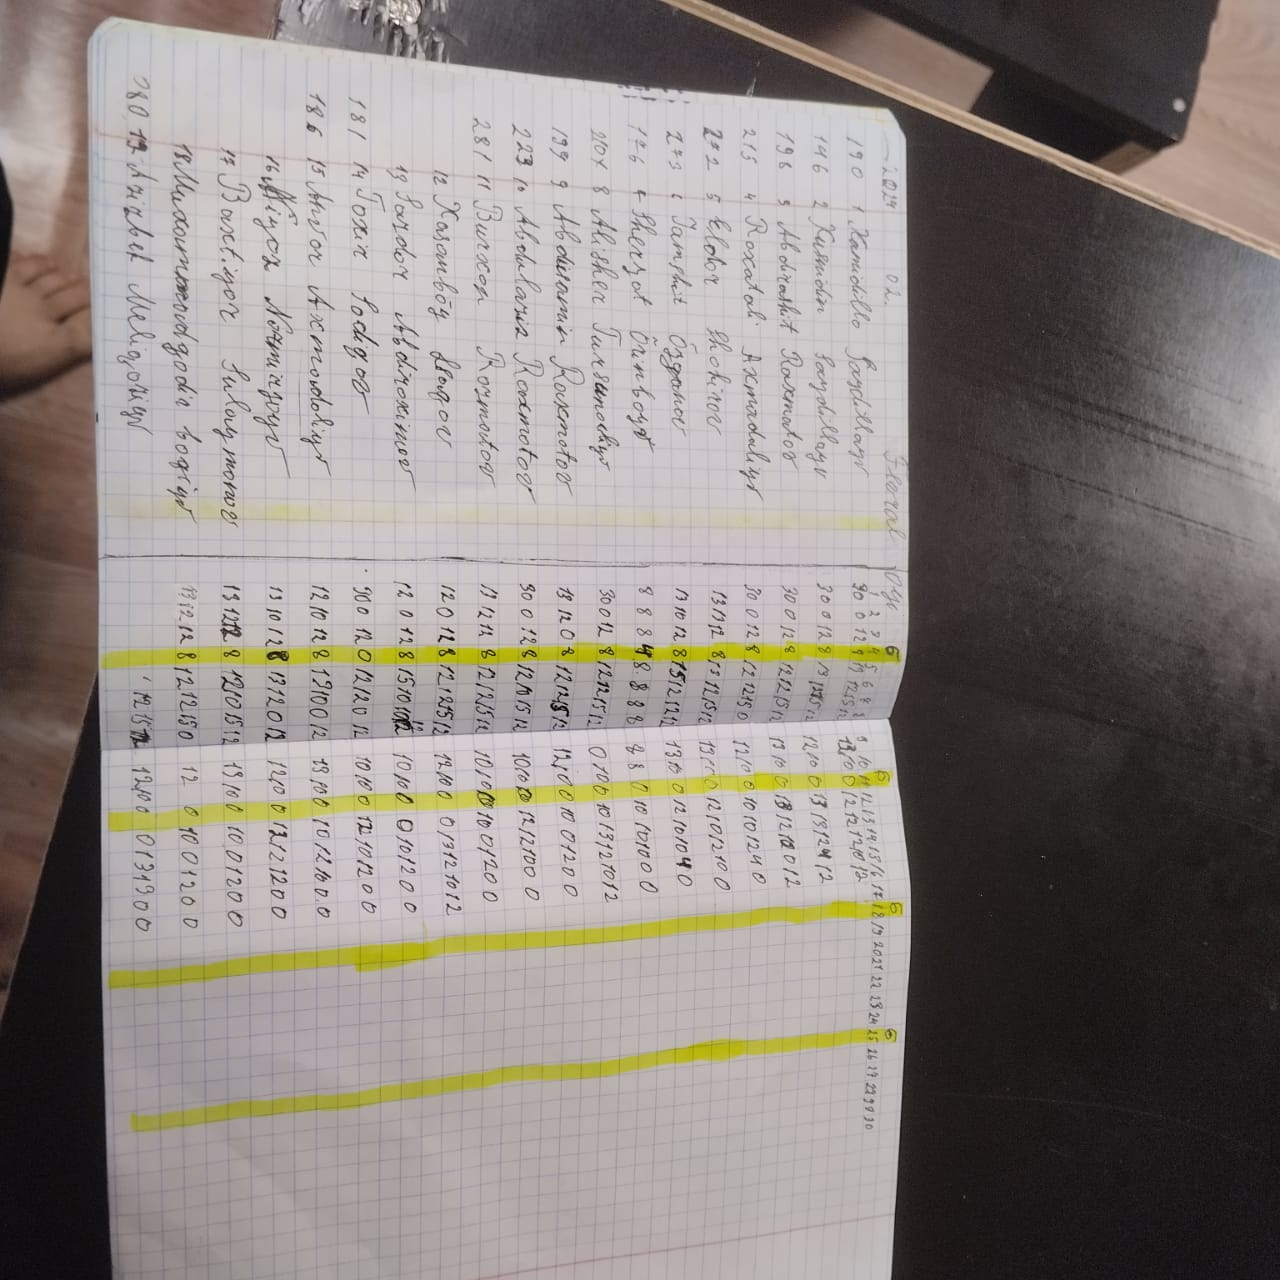 2024 02. Fevral Oyi 6 6 6 6
1 2 3 4 5 6 7 8 9 10 11 12 13 14 15 16 17 18 19 20 21 22 23 24 25 26 27 28 29 30
190 1 Xamidillo Saydillayv 30 0 12 8 13 12 15 12 13 10 0 12 12 12 10 12
196 2 Xusnidin Saydillayv 30 0 12 8 13 12 15 12 12 10 0 13 13 12 4 12
198 3 Abdirashit Raxmatov 30 0 12 8 12 12 15 12 13 10 0 13 12 12 0 12
215 4 Roxatali Axmadaliyv 30 0 12 8 12 12 15 0 12 10 0 10 10 12 4 0
272 5 Eldor Shokirov 13 13 12 8 13 12 15 12 13 10 0 12 10 12 10 0
273 6 Jamshit Õzganov 13 10 12 8 15 12 12 12 13 10 0 12 10 10 4 0
176 7 Sherzot Õrinboyv 8 8 8 4 8 8 8 8 8 8 0 10 10 10 0 0
207 8 Alisher Tursunaliyv 30 0 12 8 12 12 15 12 0 10 0 10 13 12 10 12
199 9 Abdusamin Raxmatov 13 12 0 8 12 12 15 12 12 10 0 10 0 12 0 0
223 10 Abdulaziz Raxmatov 30 0 12 8 12 10 15 12 10 10 12 12 10 0 0
281 11 Burxon Rozmatov 13 12 12 8 12 12 15 12 10 10 10 0 12 0 0
12 Xasanbõy 12 0 12 8 12 12 15 12 12 10 0 0 13 12 10 12
13 Sardor Abdiroximov 12 0 12 8 15 10 10 12 10 10 0 0 10 12 0 0
181 14 Toxir Sodiqov 30 0 12 0 12 12 0 12 10 10 0 12 10 12 0 0
186 15 Anvor Axmadoliyv 12 10 12 8 13 10 0 12 13 10 0 10 12 10 0 0
16 Niyoz Normirzoyv 13 10 12 8 13 12 0 12 12 10 0 12 12 12 0 0
17 Baxtiyor Sulaymonov 13 12 12 8 12 10 15 12 13 10 0 10 0 12 0 0
18 Muxammadqodir Boqiyv 13 12 12 8 12 12 15 0 12 0 10 0 12 0 0
280 19 Azizbek Meliqoziyv 12 15 12 12 10 0 0 13 13 0 0